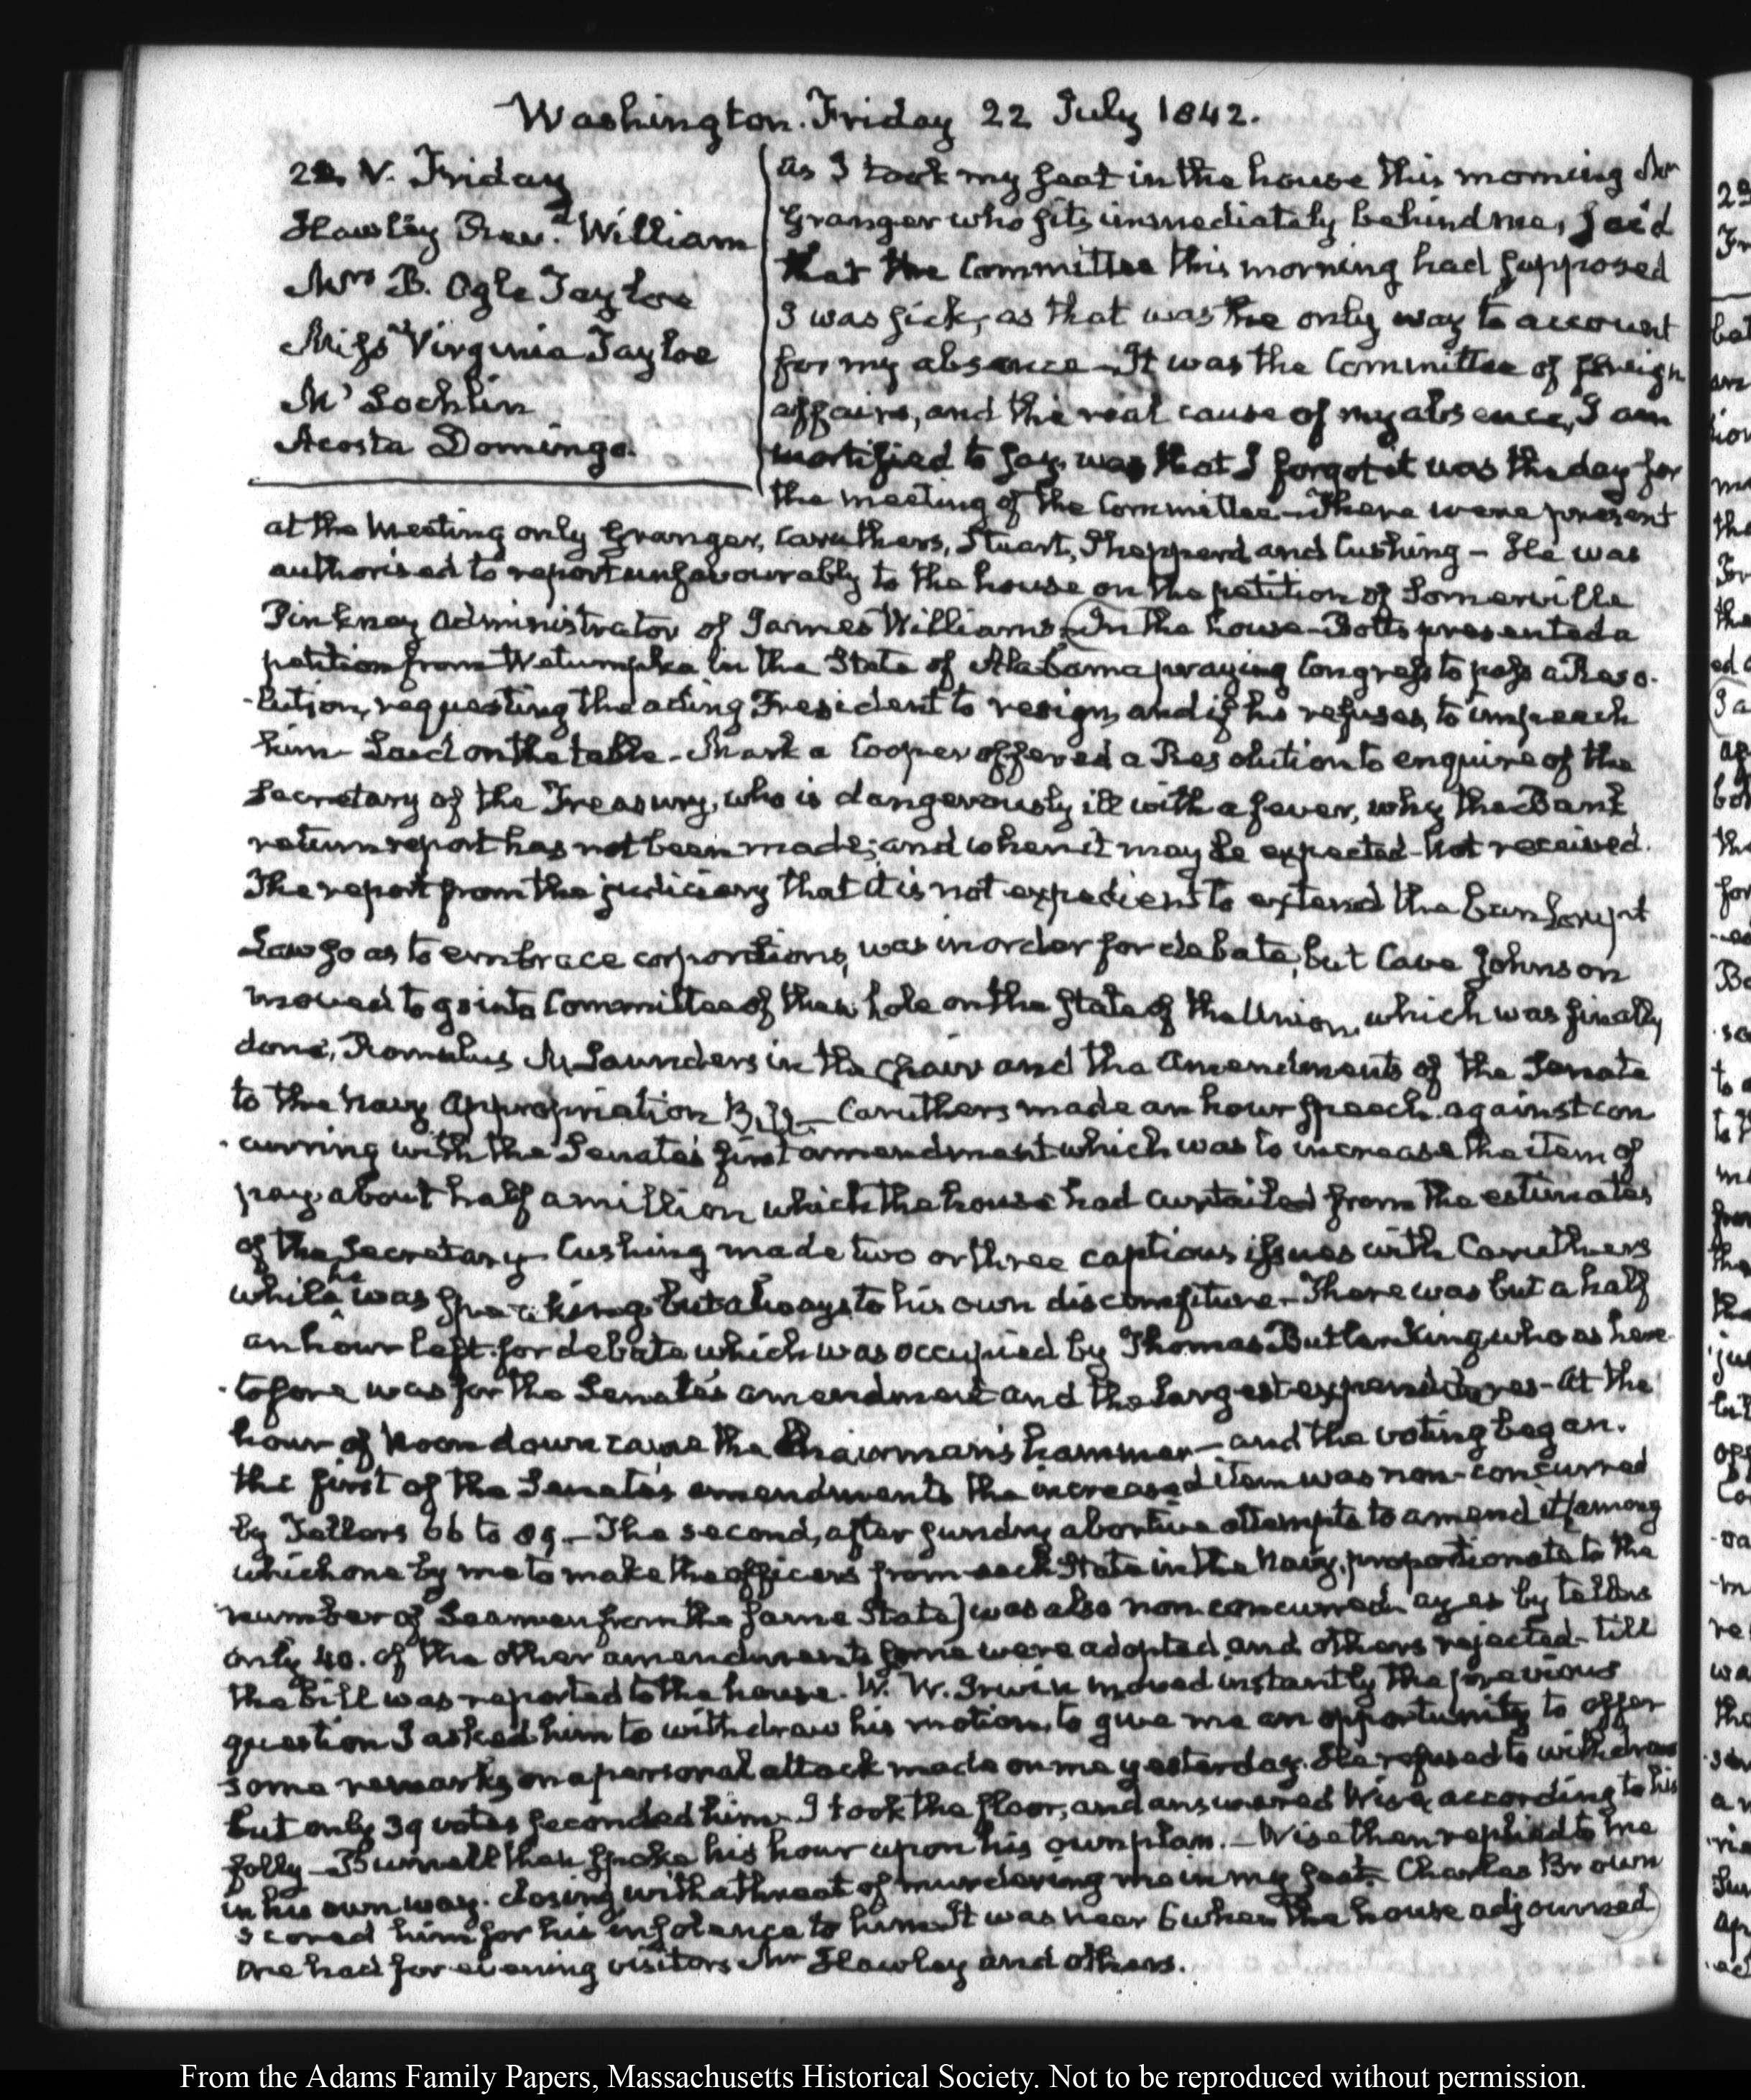 Washington. Friday 22 July 1842.
22. V. Friday
Hawley Revd. William
Mrs B. Ogle Tayloe
Miss Virginia Tayloe
Mr Lochlin
Acosta Domingo.
As I took my seat in the house this morning Mr
Granger who sits immediately behind me, said
that the Committee this morning had supposed
I was sick, as that was the only way to account
for my absence— It was the Committee of foreign
affairs, and the real cause of my absence, I am
mortified to say, was that I forgot it was the day for
the meeting of the Committee— There were present
at the meeting only Granger, Caruthers, Stuart, Shepperd and Cushing— He was
authorised to report unfavourably to the house on the petition of Somerville
Pinkney administrator of James Williams. In the house— Botts presented a
petition from Wetumpka in the State of Alabama praying Congress to pass a Reso-
-lution, requesting the acting President to resign, and if he refuses, to impeach
him— Laid on the table— Mark A Cooper offered a Resolution to enquire of the
Secretary of the Treasury, who is dangerously ill with a fever, why the Bank
return report has not been made; and when it may be expected— Not received.
The report from the judiciary that it is not expedient to extend the bankrupt
Law so as to embrace corporations, was in order for debate, but Cave Johnson
moved to go into Committee of the whole on the state of the Union, which was finally
done, Romulus M Saunders in the Chair and the amendments of the Senate
to the Navy Appropriation Bill— Caruthers made an hour speech against con
-curring with the Senate's first amendment which was to increase the item of
pay about half a million which the house had curtailed from the estimates
of the Secretary— Cushing made two or three captious issues with Caruthers
while he was speaking, but always to his own discomfiture— There was but a half
an hour left for debate which was occupied by Thomas Butler King, who as here-
-tofore was for the Senate's amendment and the largest expenditures— At the
hour of Noon down came the Chairman's hammer— and the voting began.
the first of the Senate's amendments the increased item was non-concurred
by Tellers 66 to 89— The second, after sundry abortive attempts to amend it [among
which one by me to make the officers from each State in the Navy, proportionate to the
number of Seamen from the same State] was also non-concurred ayes by tellers
only 40. of the other amendments some were adopted, and others rejected— till
the bill was reported to the house. W. W. Irwin moved instantly the previous
question I asked him to withdraw his motion, to give me an opportunity to offer
some remarks on a personal attack made on me yesterday. He refused to withdraw
but only 39 votes seconded him. I took the floor, and answered Wise according to his
folly— Burnell then spoke his hour upon his own plan.— Wise then replied to me
in his own way. closing with a threat of murdering me in my seat— Charles Brown
scored him for his insolence to him— It was near 6 when the house adjourned
We had for evening visitors Mr Hawley and others.
From the Adams Family Papers, Massachusetts Historical Society. Not to be reproduced without permission.